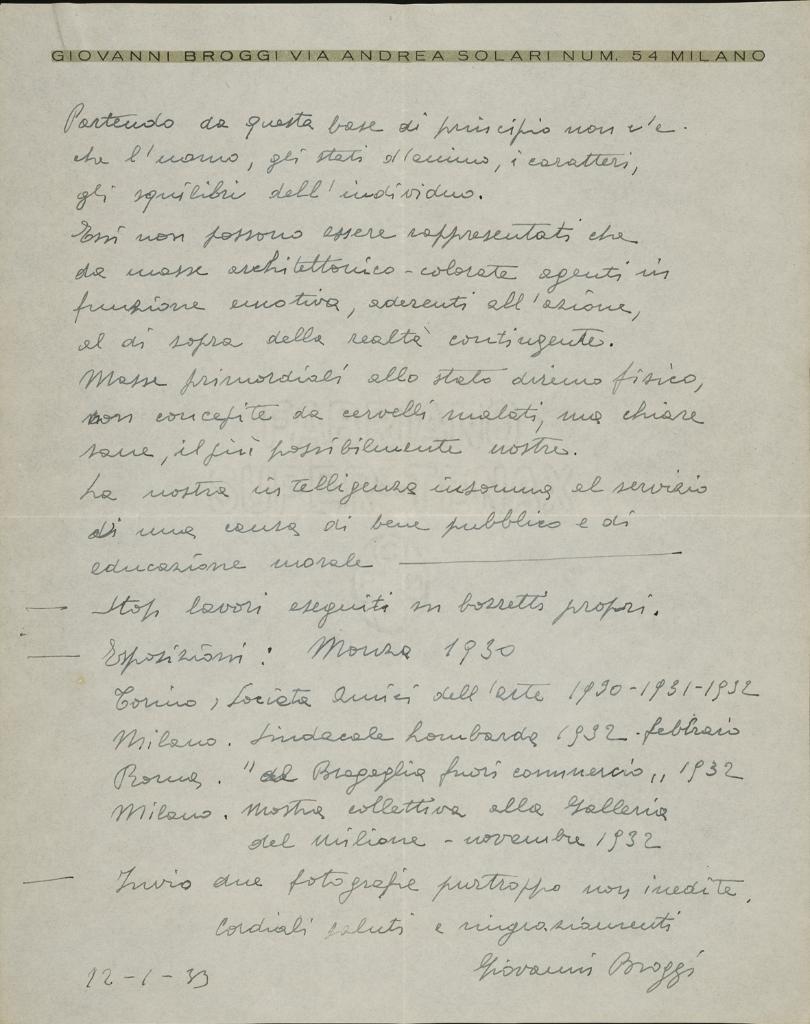 GIOVANNI BROGGI VIA ANDREA SOLARI NUM. 54 MILANO
Partendo da questa base di principio non v'è
che l'uomo, gli stati d'animo, i caratteri,
gli squilibri dell'individuo.
Essi non possono essere rappresentati che
da masse architettonico-colorate agenti in
funzione emotiva, aderenti all'azione,
al di sopra della realtà contingente.
Masse primordiali allo stato diremo fisico,
non concepite da cervelli malati, ma chiare
sane, il più possibilmente nostre.
La nostra intelligenza insomma al servizio
di una causa di bene pubblico e di
educazione morale
— lavori eseguiti su bozzetti propri.
— Esposizioni: Monza 1930
Torino, Società Amici dell'arte 1930-1931-1932
Milano. Sindacale Lombarda 1932-febbraio
Roma. "da Bragaglia fuori commercio" 1932
Milano. Mostra collettiva alla Galleria
del milione - novembre 1932
— Invio due fotografie purtroppo non inedite.
Cordiali saluti e ringraziamenti
Giovanni Broggi
12-1-33